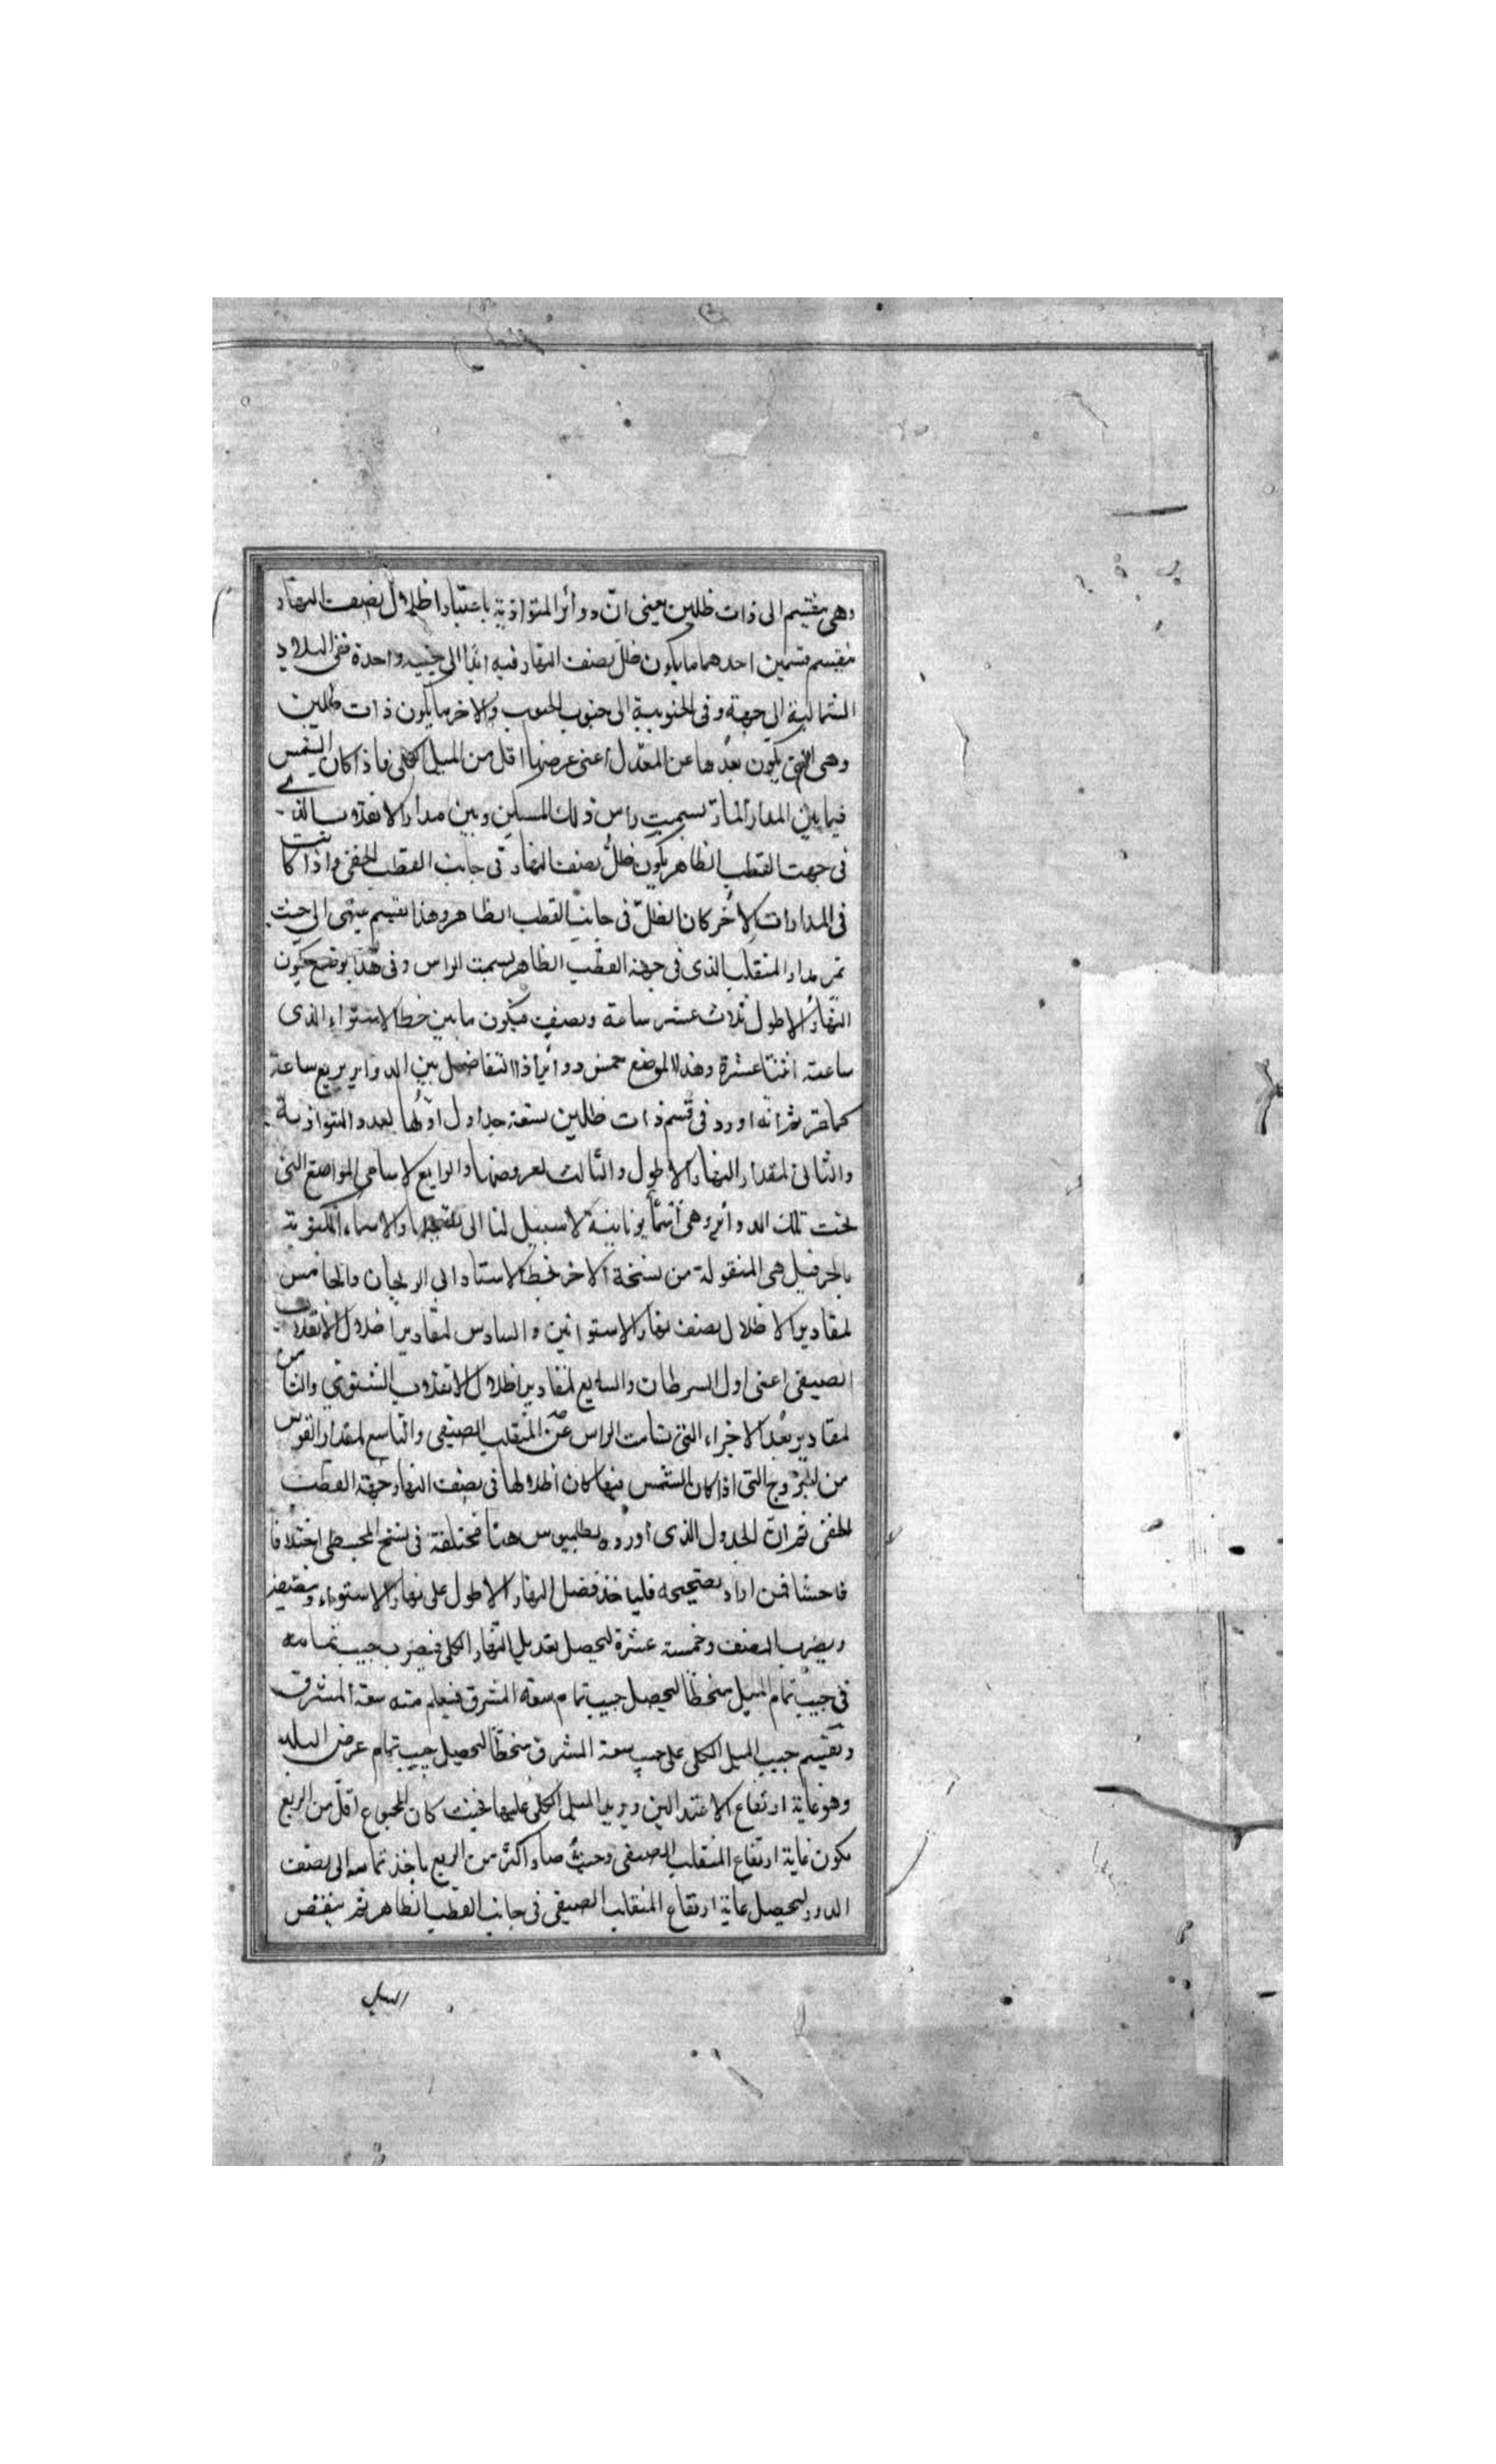 وهى ينقسم الى ذات ظلين يعنى انّ دوائر المتوازية باعتبار اظلال نصف النهار
ينقسم قسمين احدهما ما يكون ظلّ نصف النهار فيه ابدا الى جهة واحدة ففى البلاد
الشمالية الى جهة وفى الجنوبية الى جنوب الجنوب والاخر ما يكون ذات ظلين
وهى التى يكون بعدها عن المعدّل اعنى عرضها اقل من الميل الكلى فاذا كان الشمس
فيما بين المدار المارّ بسمت راس ذلك المسكن وبين مدار الانقلاب الذى
فى جهت القطب الظاهر يكون ظلّ نصف النهار فى جانب القطب الخفى واذا كانت
فى المدارات الاُخر كان الظلّ فى جانب القطب الظاهر وهذا تقسيم ينتهى الى حيث
تمر مدار المنقلب الذى فى جهة القطب الظاهر بسمت الراس وفى هذا موضع يكون
النهار الاطول ثلاث عشر ساعة ونصف فيكون ما بين خط الاستواء الذى
ساعته اثنتا عشرة وهذا الموضع خمس دوائر اذ التفاضل بين الدواير بربع ساعة
كما مر ثم انه اورد فى قسم ذات ظلين تسعة جداول اولها لعدد المتوازية
والثانى لمقدار النهار الاطول والثالث لعروضها والرابع لاسامى المواضع التى
تحت تلك الدوائر وهى اسماء يونانية لا سبيل لنا الى والاسماء المكتوبة
هى المنقولة من نسخة الاخر بخط الاستاد ابى الريحان والخامس
لمقادير الاظلال نصف نهار الاستوائين والسادس لمقادير اظلال الانقلاب
الصيفى اعنى اول السرطان والسابع لمقادير اظلال الانقلاب الشتوى والثامن
لمقادير بُعد الاجزاء التى تسامت الراس عن المنقلب الصيفى والتاسع لمقدار القوس
من البروج التى اذا كان الشمس فيها كان اظلالها فى نصف النهار جهة القطب
الخفى ثم انّ الجدول الذى اورده بطلميوس هنا مختلفة فى نسخ المجسطى اختلافا
فاحشا فمن اراد تصحيحه فلياخذ فضل النهار الاطول على نهار الاستواء
ويضرب النصف وخمسة عشرة ليحصل تعديل النهار الكلى فيضرب جيب تمامه
فى جيب تمام الميل منحطا ليحصل جيب تمام سعة المشرق فيعلم منه سعة المشرق
ونقسم جيب الميل الكلى على جيب سعة المشرق منحطا ليحصل جيب تمام عرض البلد
وهو غاية ارتفاع الاعتدالين ويزيد الميل الكلى عليها فحيث كان المجموع اقلّ من الربع
يكون غاية ارتفاع المنقلب الصيفى وحيث صار اكثر من الربع ياخذ تمامه الى نصف
الدور ليحصل غاية ارتفاع المنقلب الصيفى فى جانب القطب الظاهر ثم ينقص
الميل